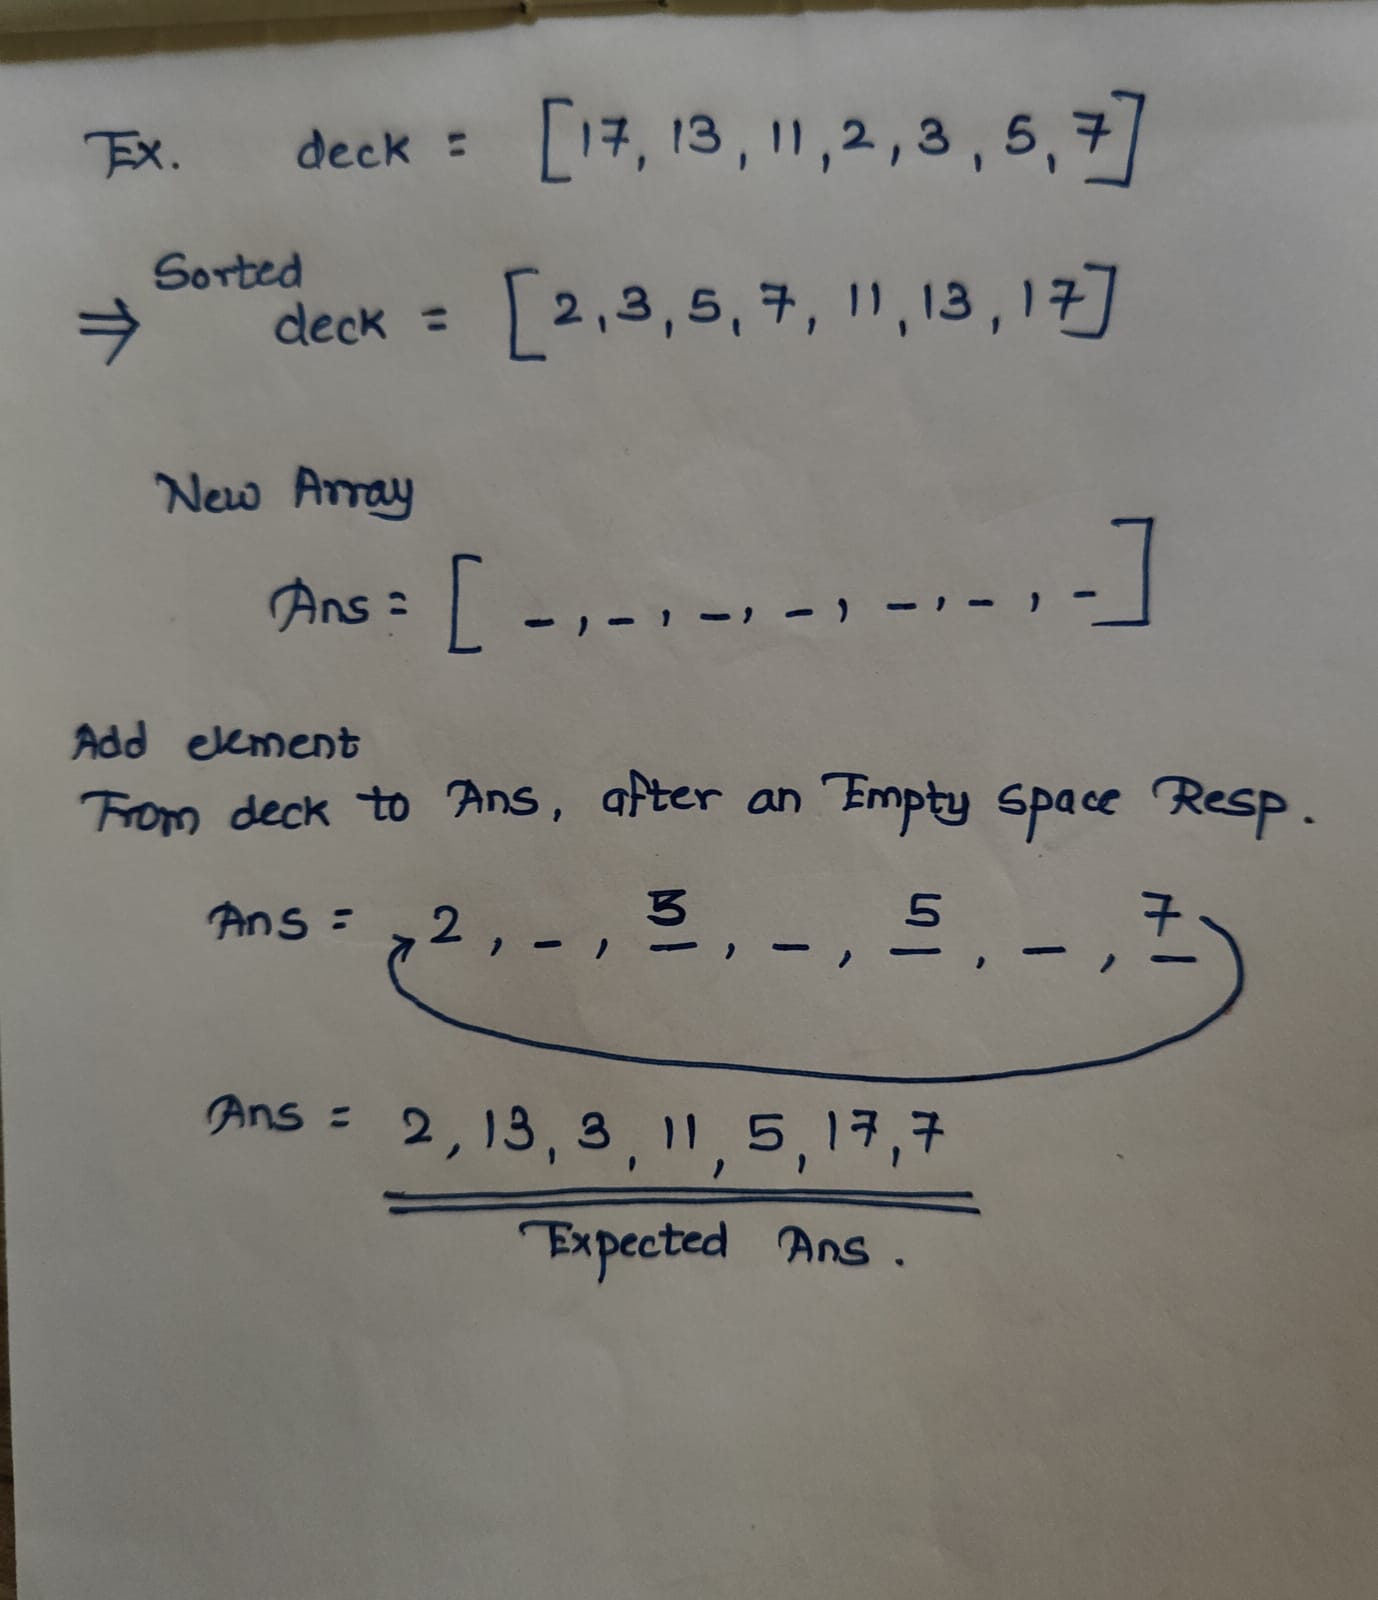 Ex. deck = [17, 13, 11, 2, 3, 5, 7]
Sorted
⇒ deck = [2, 3, 5, 7, 11, 13, 17]
New Array
Ans = [ _, _, _, _, _, _, _ ]
Add element
From deck to Ans, after an Empty space Resp.
Ans = 2, _, 3, _, 5, _, 7
Ans = 2, 13, 3, 11, 5, 17, 7
Expected Ans.